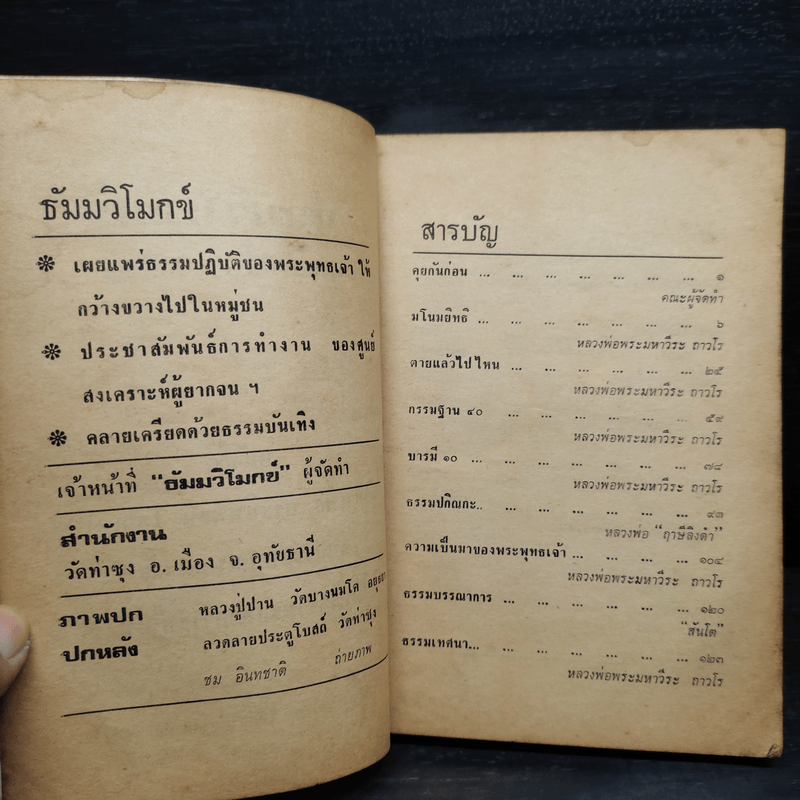 ธัมมวิโมกข์
❋ เผยแพร่ธรรมปฏิบัติของพระพุทธเจ้า ให้
กว้างขวางไปในหมู่ชน
❋ ประชาสัมพันธ์การทำงาน ของศูนย์
สงเคราะห์ผู้ยากจน ฯ
❋ คลายเครียดด้วยธรรมบันเทิง
เจ้าหน้าที่ "ธัมมวิโมกข์" ผู้จัดทำ
สำนักงาน
วัดท่าซุง อ. เมือง จ. อุทัยธานี
ภาพปก หลวงปู่ปาน วัดบางนมโค
ปกหลัง ลวดลายประตูโบสถ์ วัดท่าซุง
ชม อินทชาติ ถ่ายภาพ
สารบัญ
คุยกันก่อน ... ... ... ... ... ... ... ๑
คณะผู้จัดทำ
มโนมยิทธิ ... ... ... ... ... ... ... ๖
หลวงพ่อพระมหาวีระ ถาวโร
ตายแล้วไปไหน ... ... ... ... ... ... ๒๕
หลวงพ่อพระมหาวีระ ถาวโร
กรรมฐาน ๔๐ ... ... ... ... ... ... ๕๙
หลวงพ่อพระมหาวีระ ถาวโร
บารมี ๑๐ ... ... ... ... ... ... ... ๗๔
หลวงพ่อพระมหาวีระ ถาวโร
ธรรมปกิณกะ.. ... ... ... ... ... ... ๙๓
หลวงพ่อ "ฤาษีลิงดำ"
ความเป็นมาของพระพุทธเจ้า ... ... ... ... ๑๐๔
หลวงพ่อพระมหาวีระ ถาวโร
ธรรมบรรณาการ ... ... ... ... ... ... ๑๒๐
"สันโต"
ธรรมเทศนา... ... ... ... ... ... ... ๑๒๓
หลวงพ่อพระมหาวีระ ถาวโร